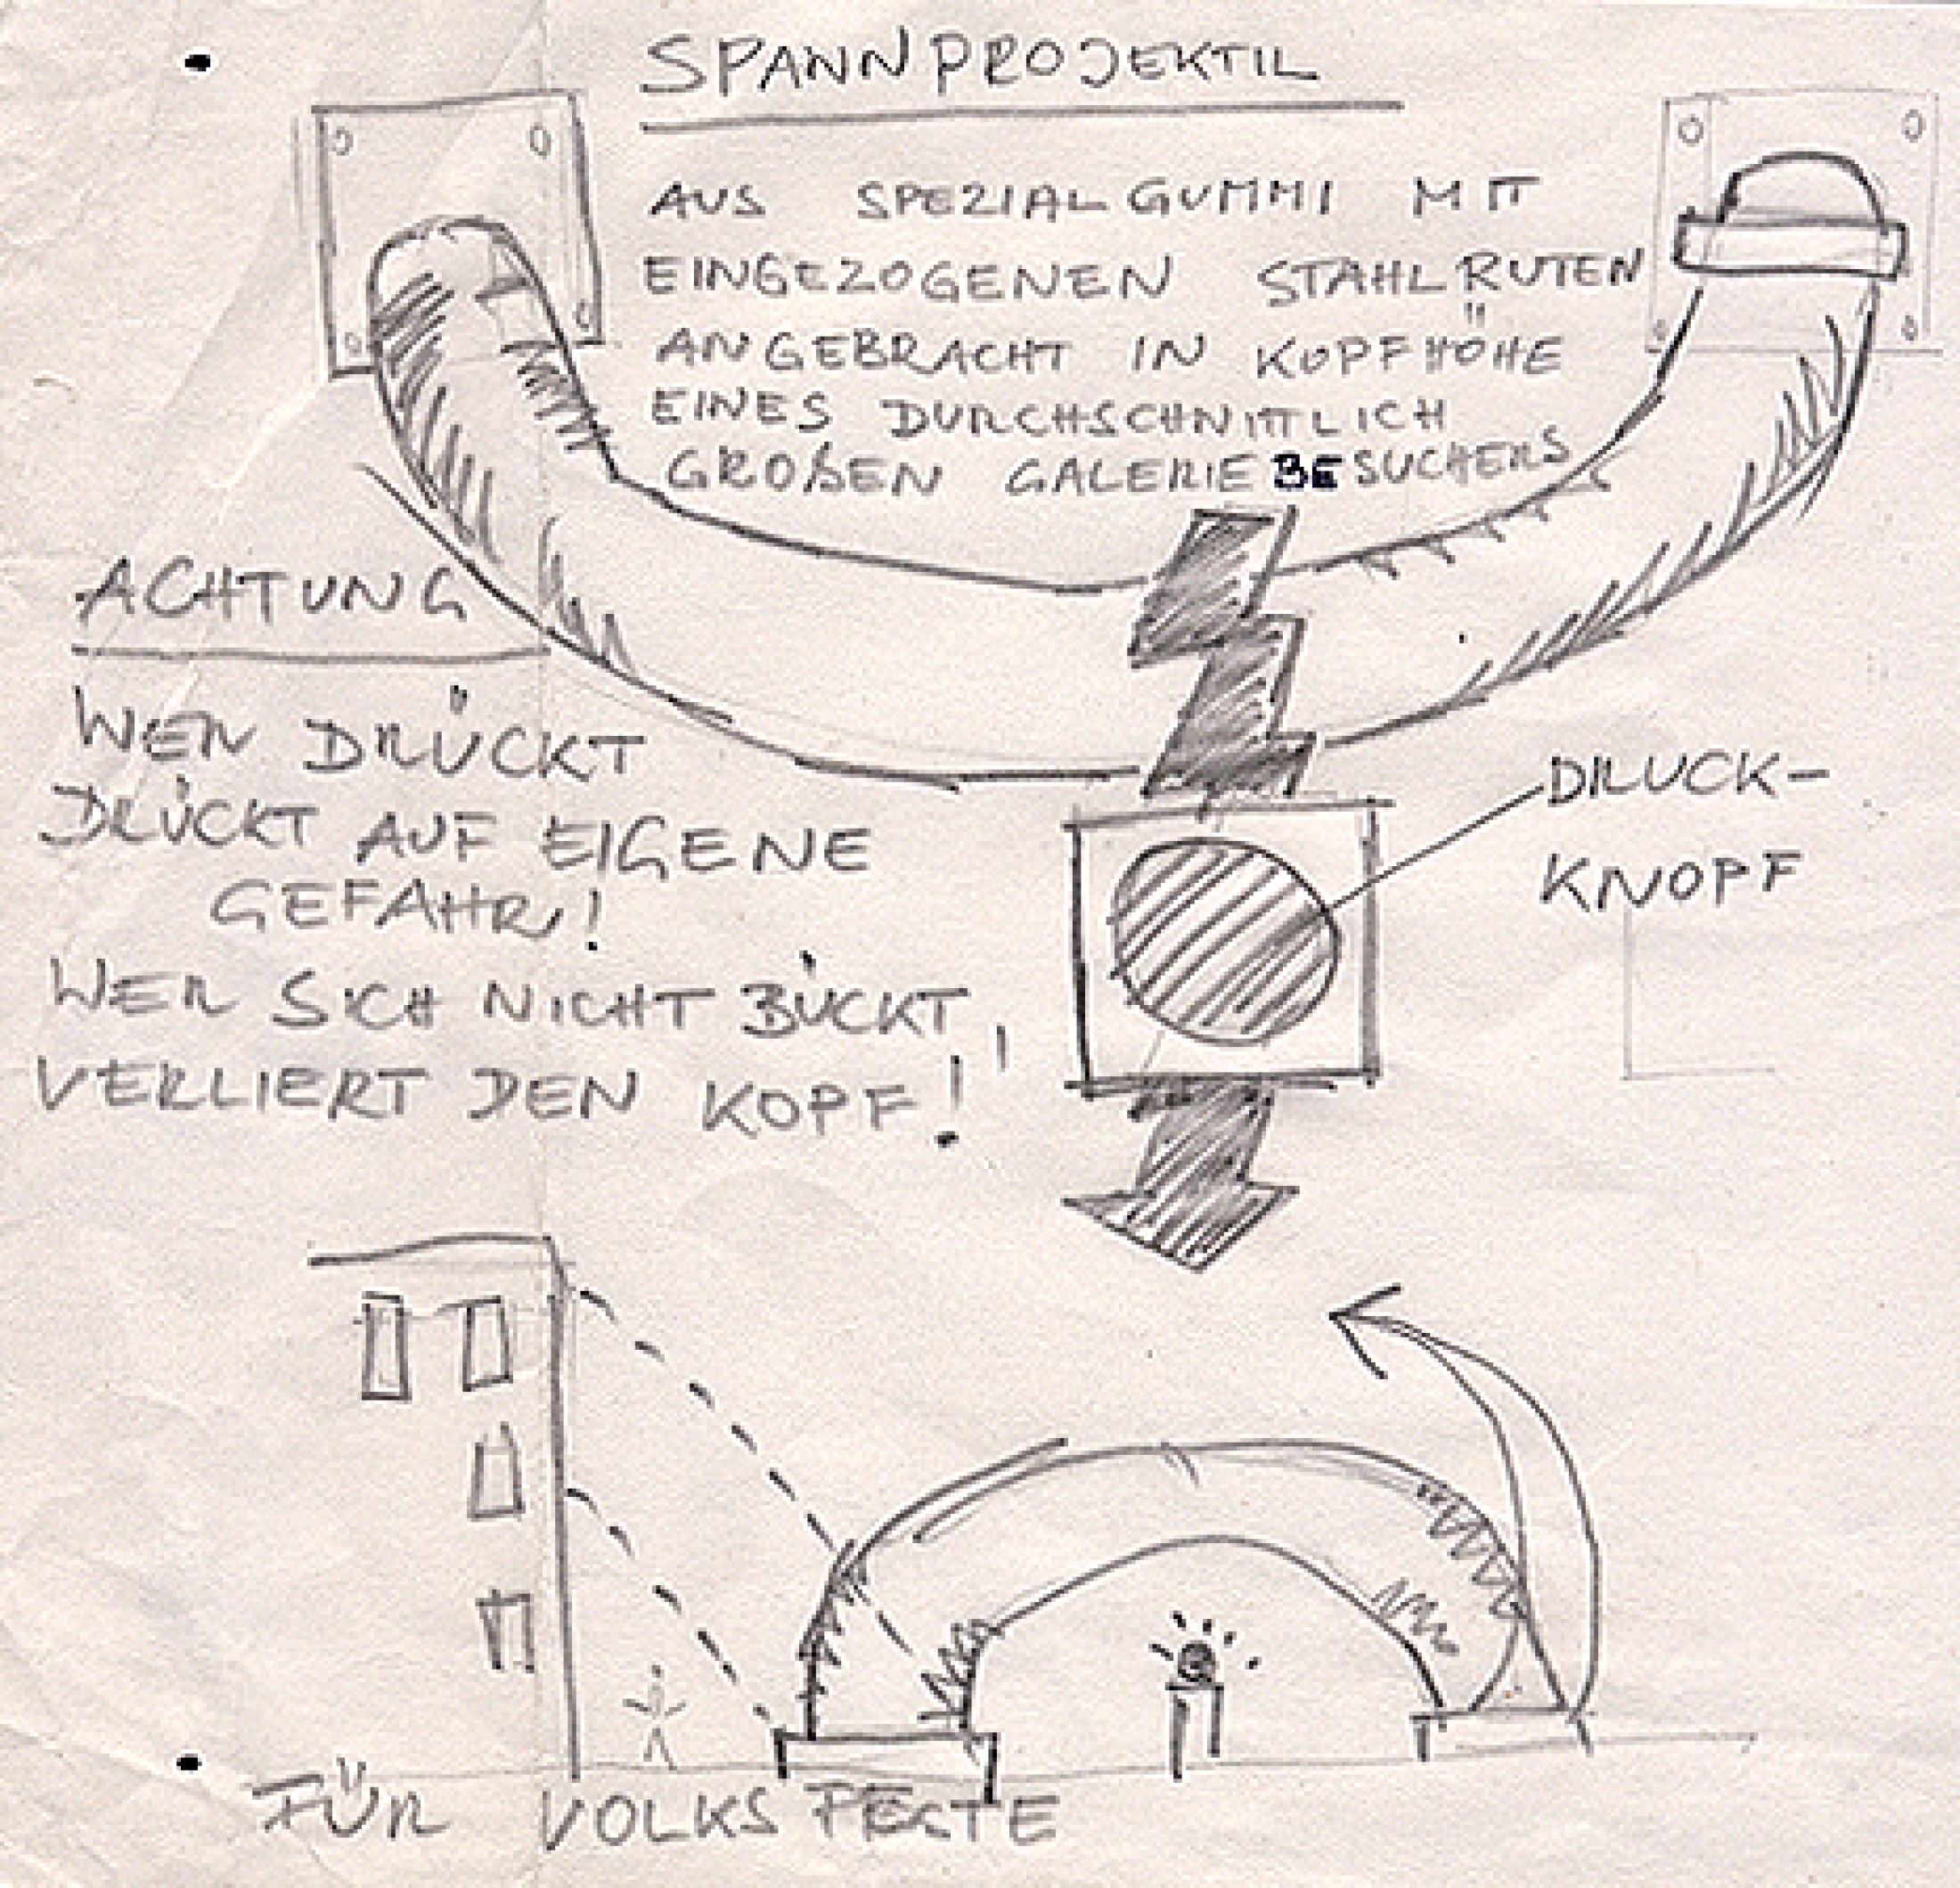 SPANNPROJEKTIL
AUS SPEZIALGUMMI MIT
EINGEZOGENEN STAHLRUTEN
ANGEBRACHT IN KOPFHÖHE
EINES DURCHSCHNITTLICH
GROßEN GALERIEBESUCHERS
ACHTUNG
WER DRÜCKT
DRÜCKT AUF EIGENE
GEFAHR!
WER SICH NICHT BÜCKT
VERLIERT DEN KOPF!
DRUCK-
KNOPF
FÜR VOLKSFESTE